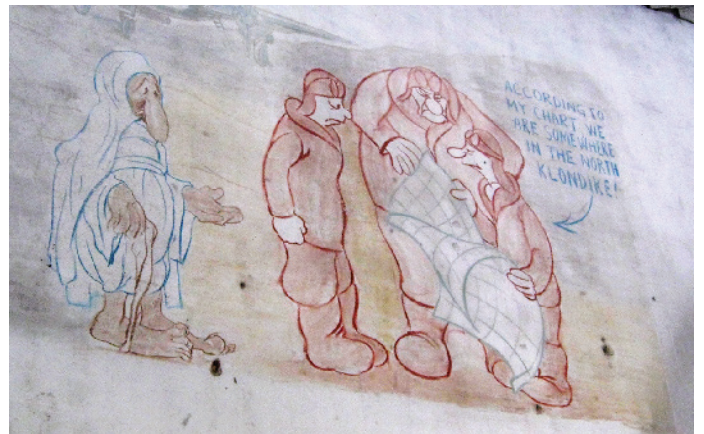 ACCORDING TO
MY CHART, WE
ARE SOMEWHERE
IN THE NORTH
KLONDIKE!